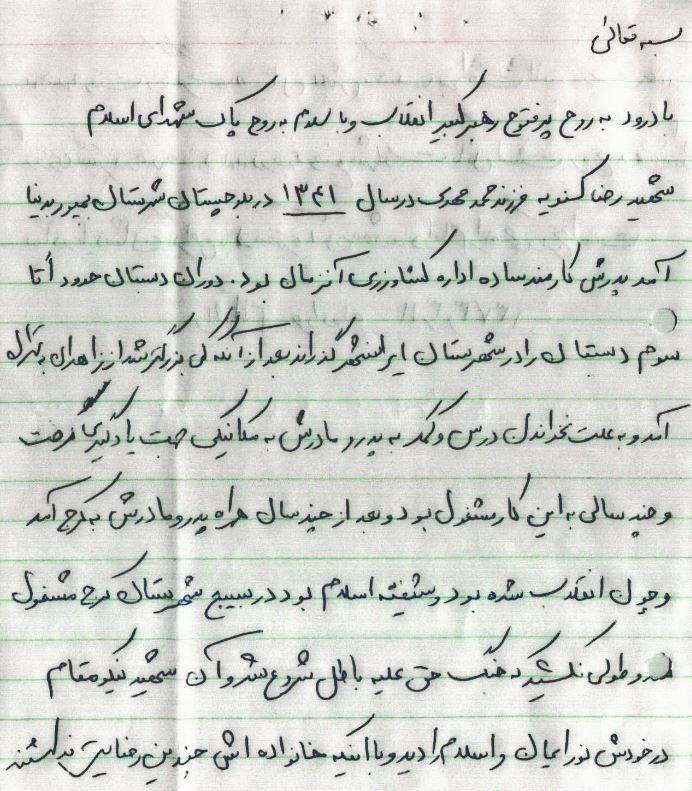 بسمه تعالی
با درود به روح پرفتوح رهبر کبیر انقلاب و با سلام به روح پاک شهدای اسلام
شهید رضا فرزند محمد مهدی در سال ۱۳۴۱ در شهرستان بدنیا
آمد پدرش کارمند ساده اداره کشاورزی آنزمان بود. دوران دبستان حدوداً تا
سوم دبستان را در شهرستان ایرانشهر گذراند بعد از آنکه کمی بزرگتر شد از زاهدان به تهران
آمد و به علت نخواندن درس و کمک به پدر و مادرش به مکانیکی جهت یادگیری رفت
و چند سالی به این کار مشغول بود و بعد از چند سال همراه پدر و مادرش به کرج آمد
و چون انقلاب شده بود و شیفته اسلام بود در بسیج شهرستان کرج مشغول
شد و طولی نکشید که جنگ حق علیه باطل شروع شد و آن شهید نیکو مقام
در خودش نور ایمان و اسلام را دید و با اینکه خانواده اش چندین رضایت نداشتند